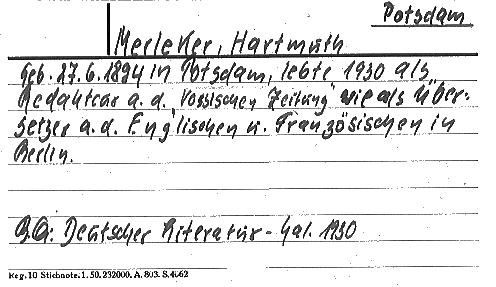 Potsdam
Merleker, Hartmuth
Geb. 27.6.1894 in Potsdam, lebte 1930 als
Redakteur a. d. "Vossischen Zeitung" wie als Über-
setzer a. d. Englischen u. Französischen in
Berlin.
B.Q.: Deutscher Literatur-Kal. 1930
Reg. 10 Stichnote. 1. 50. 232000. A. 803. S. 4062